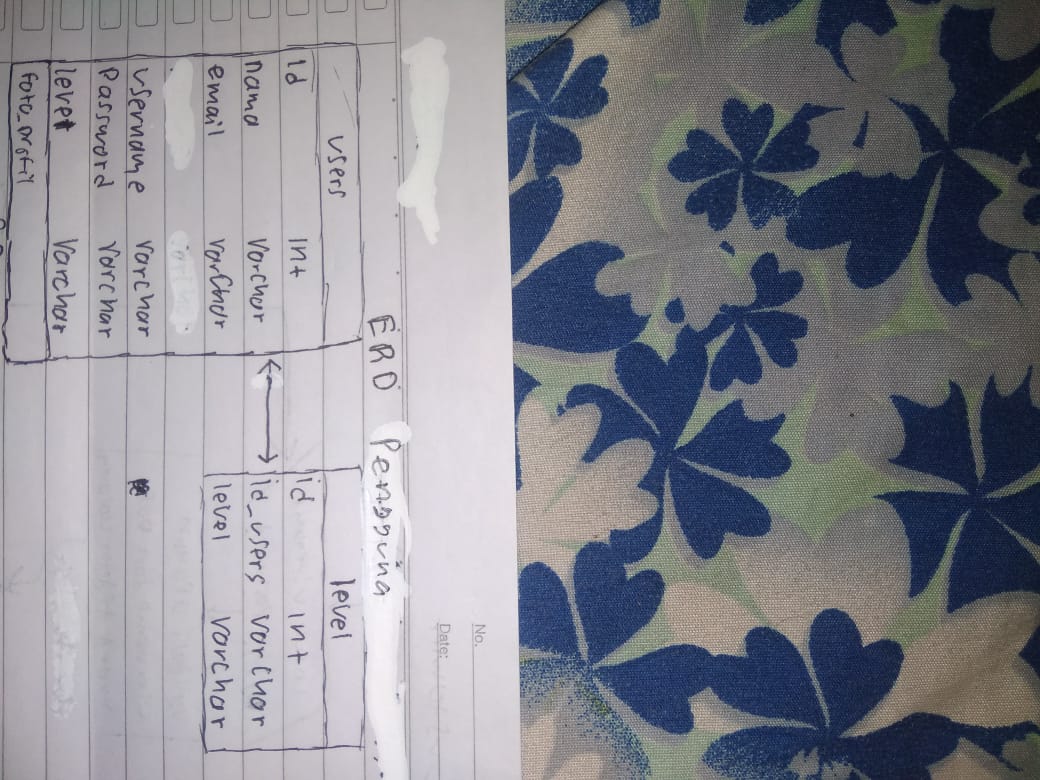 No.
Date:
ERD Pengguna
users
id int
nama varchar
email varchar
username varchar
Password varchar
level varchar
foto_profil
level
id int
id_users varchar
level varchar